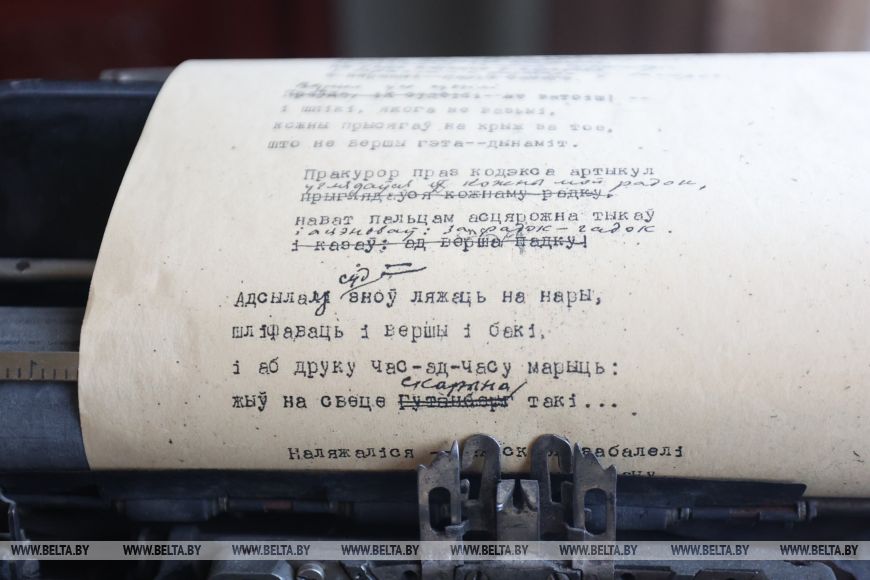 і шпікі, якога не возьмі,
кожны прысягаў на крыж за тое,
што не вершы гэта--дынаміт.
Пракурор праз кодэкса артыкул
углядаўся ў кожны мой радок,
прыглядаўся кожнаму радку.
нават пальцам асцярожна тыкаў
і ацэньваў: за радок – гадок.
і казаў: ад верша падку!
суд
Адсылалі зноў ляжаць на нары,
шліфаваць і вершы і бакі,
і аб друку час-ад-часу марыць:
Скарына
жыў на свеце Гутэнберг такі...
Належаліся забалелі
WWW.BELTA.BY WWW.BELTA.BY WWW.BELTA.BY WWW.BELTA.BY WWW.BELTA.BY WWW.BELTA.BY WWW.BELTA.BY WWW.BELTA.BY